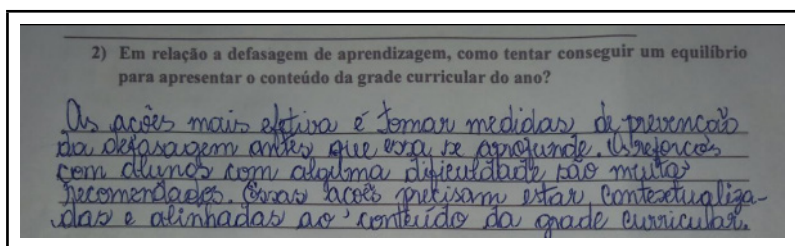 2) Em relação a defasagem de aprendizagem, como tentar conseguir um equilíbrio
para apresentar o conteúdo da grade curricular do ano?
As ações mais efetiva é tomar medidas de prevenção
da defasagem antes que essa se aprofunde. Os reforços
com alunos com alguma dificuldade são muitas
recomendados. Essas ações precisam estar contextualiza-
das e alinhadas ao conteúdo da grade curricular.